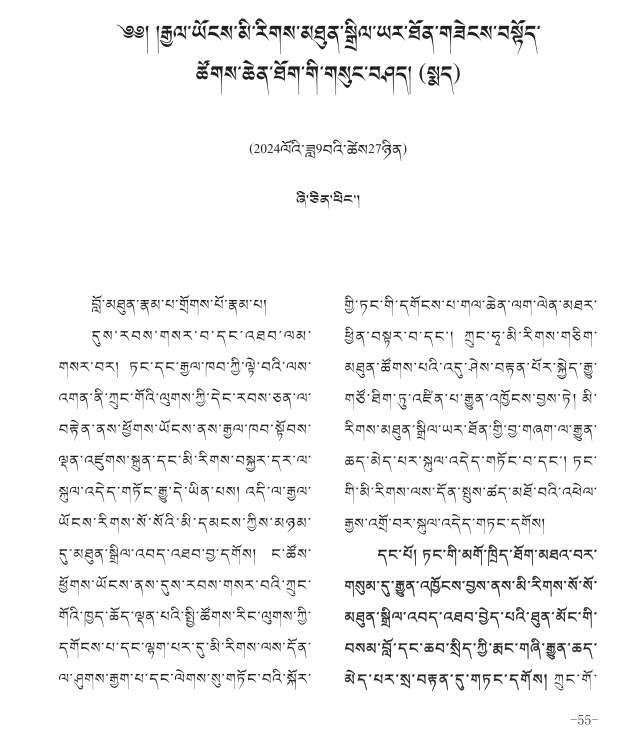 ༄༅། །རྒྱལ་ཡོངས་མི་རིགས་མཐུན་སྒྲིལ་ཡར་ཐོན་གཟེངས་བསྟོད་
ཚོགས་ཆེན་ཐོག་གི་གསུང་བཤད། (སྨད)
(2024ལོའི་ཟླ9བའི་ཚེས27ཉིན)
ཞི་ཅིན་ཕིང་།
བློ་མཐུན་རྣམ་པ་གྲོགས་པོ་རྣམ་པ།
དུས་རབས་གསར་བ་དང་འཐབ་ལམ་
གསར་བར། ཏང་དང་རྒྱལ་ཁབ་ཀྱི་ལྟེ་བའི་ལས་
འགན་ནི་ཀྲུང་གོའི་ལུགས་ཀྱི་དེང་རབས་ཅན་ལ་
བརྟེན་ནས་ཕྱོགས་ཡོངས་ནས་རྒྱལ་ཁབ་སྟོབས་
ལྡན་འཛུགས་སྐྲུན་དང་མི་རིགས་བསྐྱར་དར་ལ་
སྐུལ་འདེད་གཏོང་རྒྱུ་དེ་ཡིན་པས། འདི་ལ་རྒྱལ་
ཡོངས་རིགས་སོ་སོའི་མི་དམངས་ཀྱིས་མཉམ་
དུ་མཐུན་སྒྲིལ་འབད་འཐབ་བྱ་དགོས། ང་ཚོས་
ཕྱོགས་ཡོངས་ནས་དུས་རབས་གསར་བའི་ཀྲུང་
གོའི་ཁྱད་ཆོད་ལྡན་པའི་སྤྱི་ཚོགས་རིང་ལུགས་ཀྱི་
དགོངས་པ་དང་ལྷག་པར་དུ་མི་རིགས་ལས་དོན་
ལ་ཤུགས་རྒྱག་པ་དང་ལེགས་སུ་གཏོང་བའི་སྐོར་
གྱི་ཏང་གི་དགོངས་པ་གལ་ཆེན་ལག་ལེན་མཐར་
ཕྱིན་བསྟར་བ་དང་། ཀྲུང་ཧྭ་མི་རིགས་གཅིག་
མཐུན་ཚོགས་པའི་འདུ་ཤེས་བརྟན་པོར་སྐྱེད་རྒྱུ་
གཙོ་ཐིག་ཏུ་འཛིན་པ་རྒྱུན་འཁྱོངས་བྱས་ཏེ། མི་
རིགས་མཐུན་སྒྲིལ་ཡར་ཐོན་གྱི་བྱ་གཞག་ལ་རྒྱུན་
ཆད་མེད་པར་སྐུལ་འདེད་གཏོང་བ་དང་། ཏང་
གི་མི་རིགས་ལས་དོན་སྤུས་ཚད་མཐོ་བའི་འཕེལ་
རྒྱས་འགྲོ་བར་སྐུལ་འདེད་གཏང་དགོས།
དང་པོ། ཏང་གི་མགོ་ཁྲིད་ཐོག་མཐའ་བར་
གསུམ་དུ་རྒྱུན་འཁྱོངས་བྱས་ནས་མི་རིགས་སོ་སོ་
མཐུན་སྒྲིལ་འབད་འཐབ་བྱེད་པའི་ཐུན་མོང་གི་
བསམ་བློ་དང་ཆབ་སྲིད་ཀྱི་རྨང་གཞི་རྒྱུན་ཆད་
མེད་པར་སྲ་བརྟན་དུ་གཏང་དགོས། ཀྲུང་གོ་
-55-